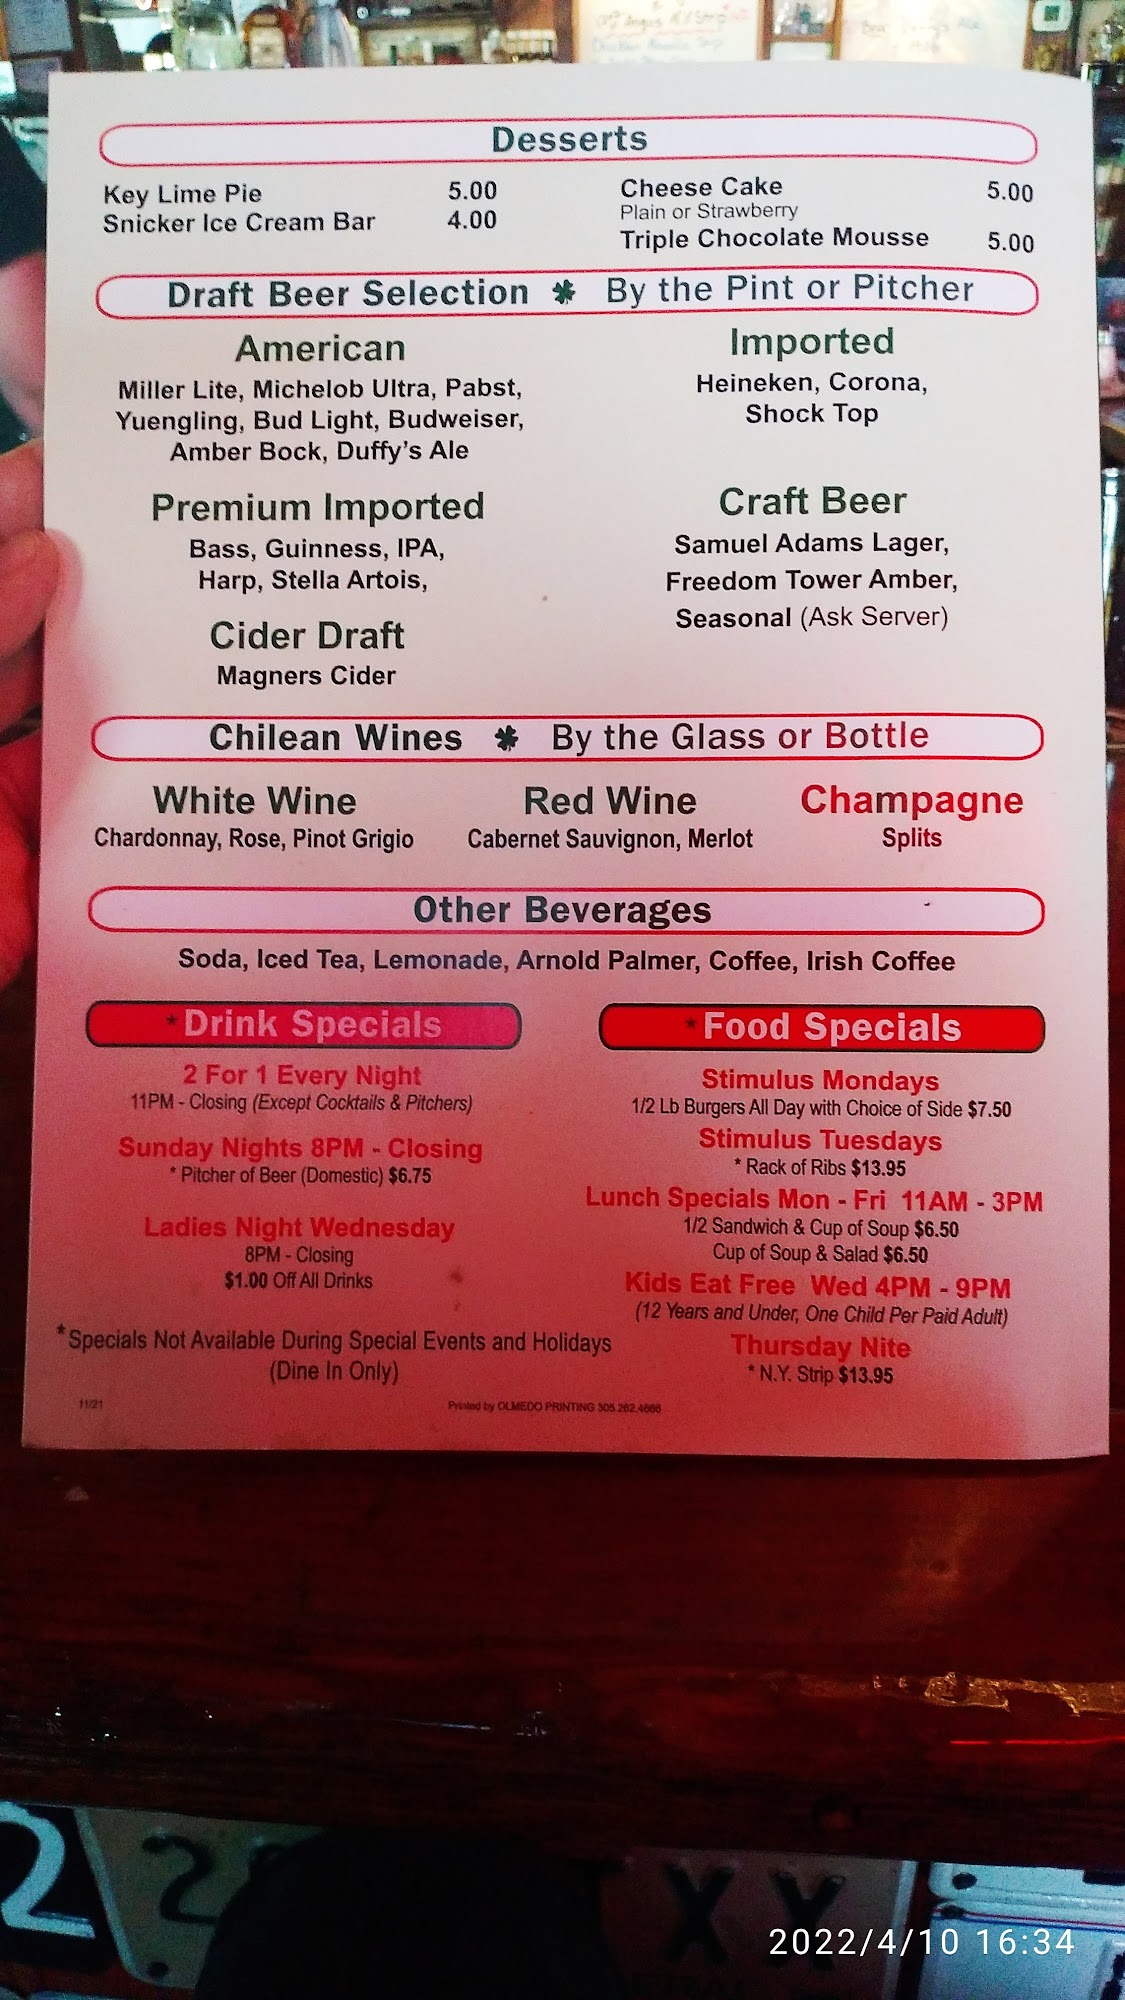 Desserts
Key Lime Pie 5.00
Snicker Ice Cream Bar 4.00
Cheese Cake 5.00
Plain or Strawberry
Triple Chocolate Mousse 5.00
Draft Beer Selection ✽ By the Pint or Pitcher
American
Miller Lite, Michelob Ultra, Pabst,
Yuengling, Bud Light, Budweiser,
Amber Bock, Duffy's Ale
Imported
Heineken, Corona,
Shock Top
Premium Imported
Bass, Guinness, IPA,
Harp, Stella Artois,
Craft Beer
Samuel Adams Lager,
Freedom Tower Amber,
Seasonal (Ask Server)
Cider Draft
Magners Cider
Chilean Wines ✽ By the Glass or Bottle
White Wine
Chardonnay, Rose, Pinot Grigio
Red Wine
Cabernet Sauvignon, Merlot
Champagne
Splits
Other Beverages
Soda, Iced Tea, Lemonade, Arnold Palmer, Coffee, Irish Coffee
*Drink Specials
2 For 1 Every Night
11PM - Closing (Except Cocktails & Pitchers)
Sunday Nights 8PM - Closing
* Pitcher of Beer (Domestic) $6.75
Ladies Night Wednesday
8PM - Closing
$1.00 Off All Drinks
*Specials Not Available During Special Events and Holidays
(Dine In Only)
*Food Specials
Stimulus Mondays
1/2 Lb Burgers All Day with Choice of Side $7.50
Stimulus Tuesdays
* Rack of Ribs $13.95
Lunch Specials Mon - Fri 11AM - 3PM
1/2 Sandwich & Cup of Soup $6.50
Cup of Soup & Salad $6.50
Kids Eat Free Wed 4PM - 9PM
(12 Years and Under, One Child Per Paid Adult)
Thursday Nite
* N.Y. Strip $13.95
11/21
Printed by OLMEDO PRINTING 305.262.4666
2
2
X Y
2022/4/10 16:34